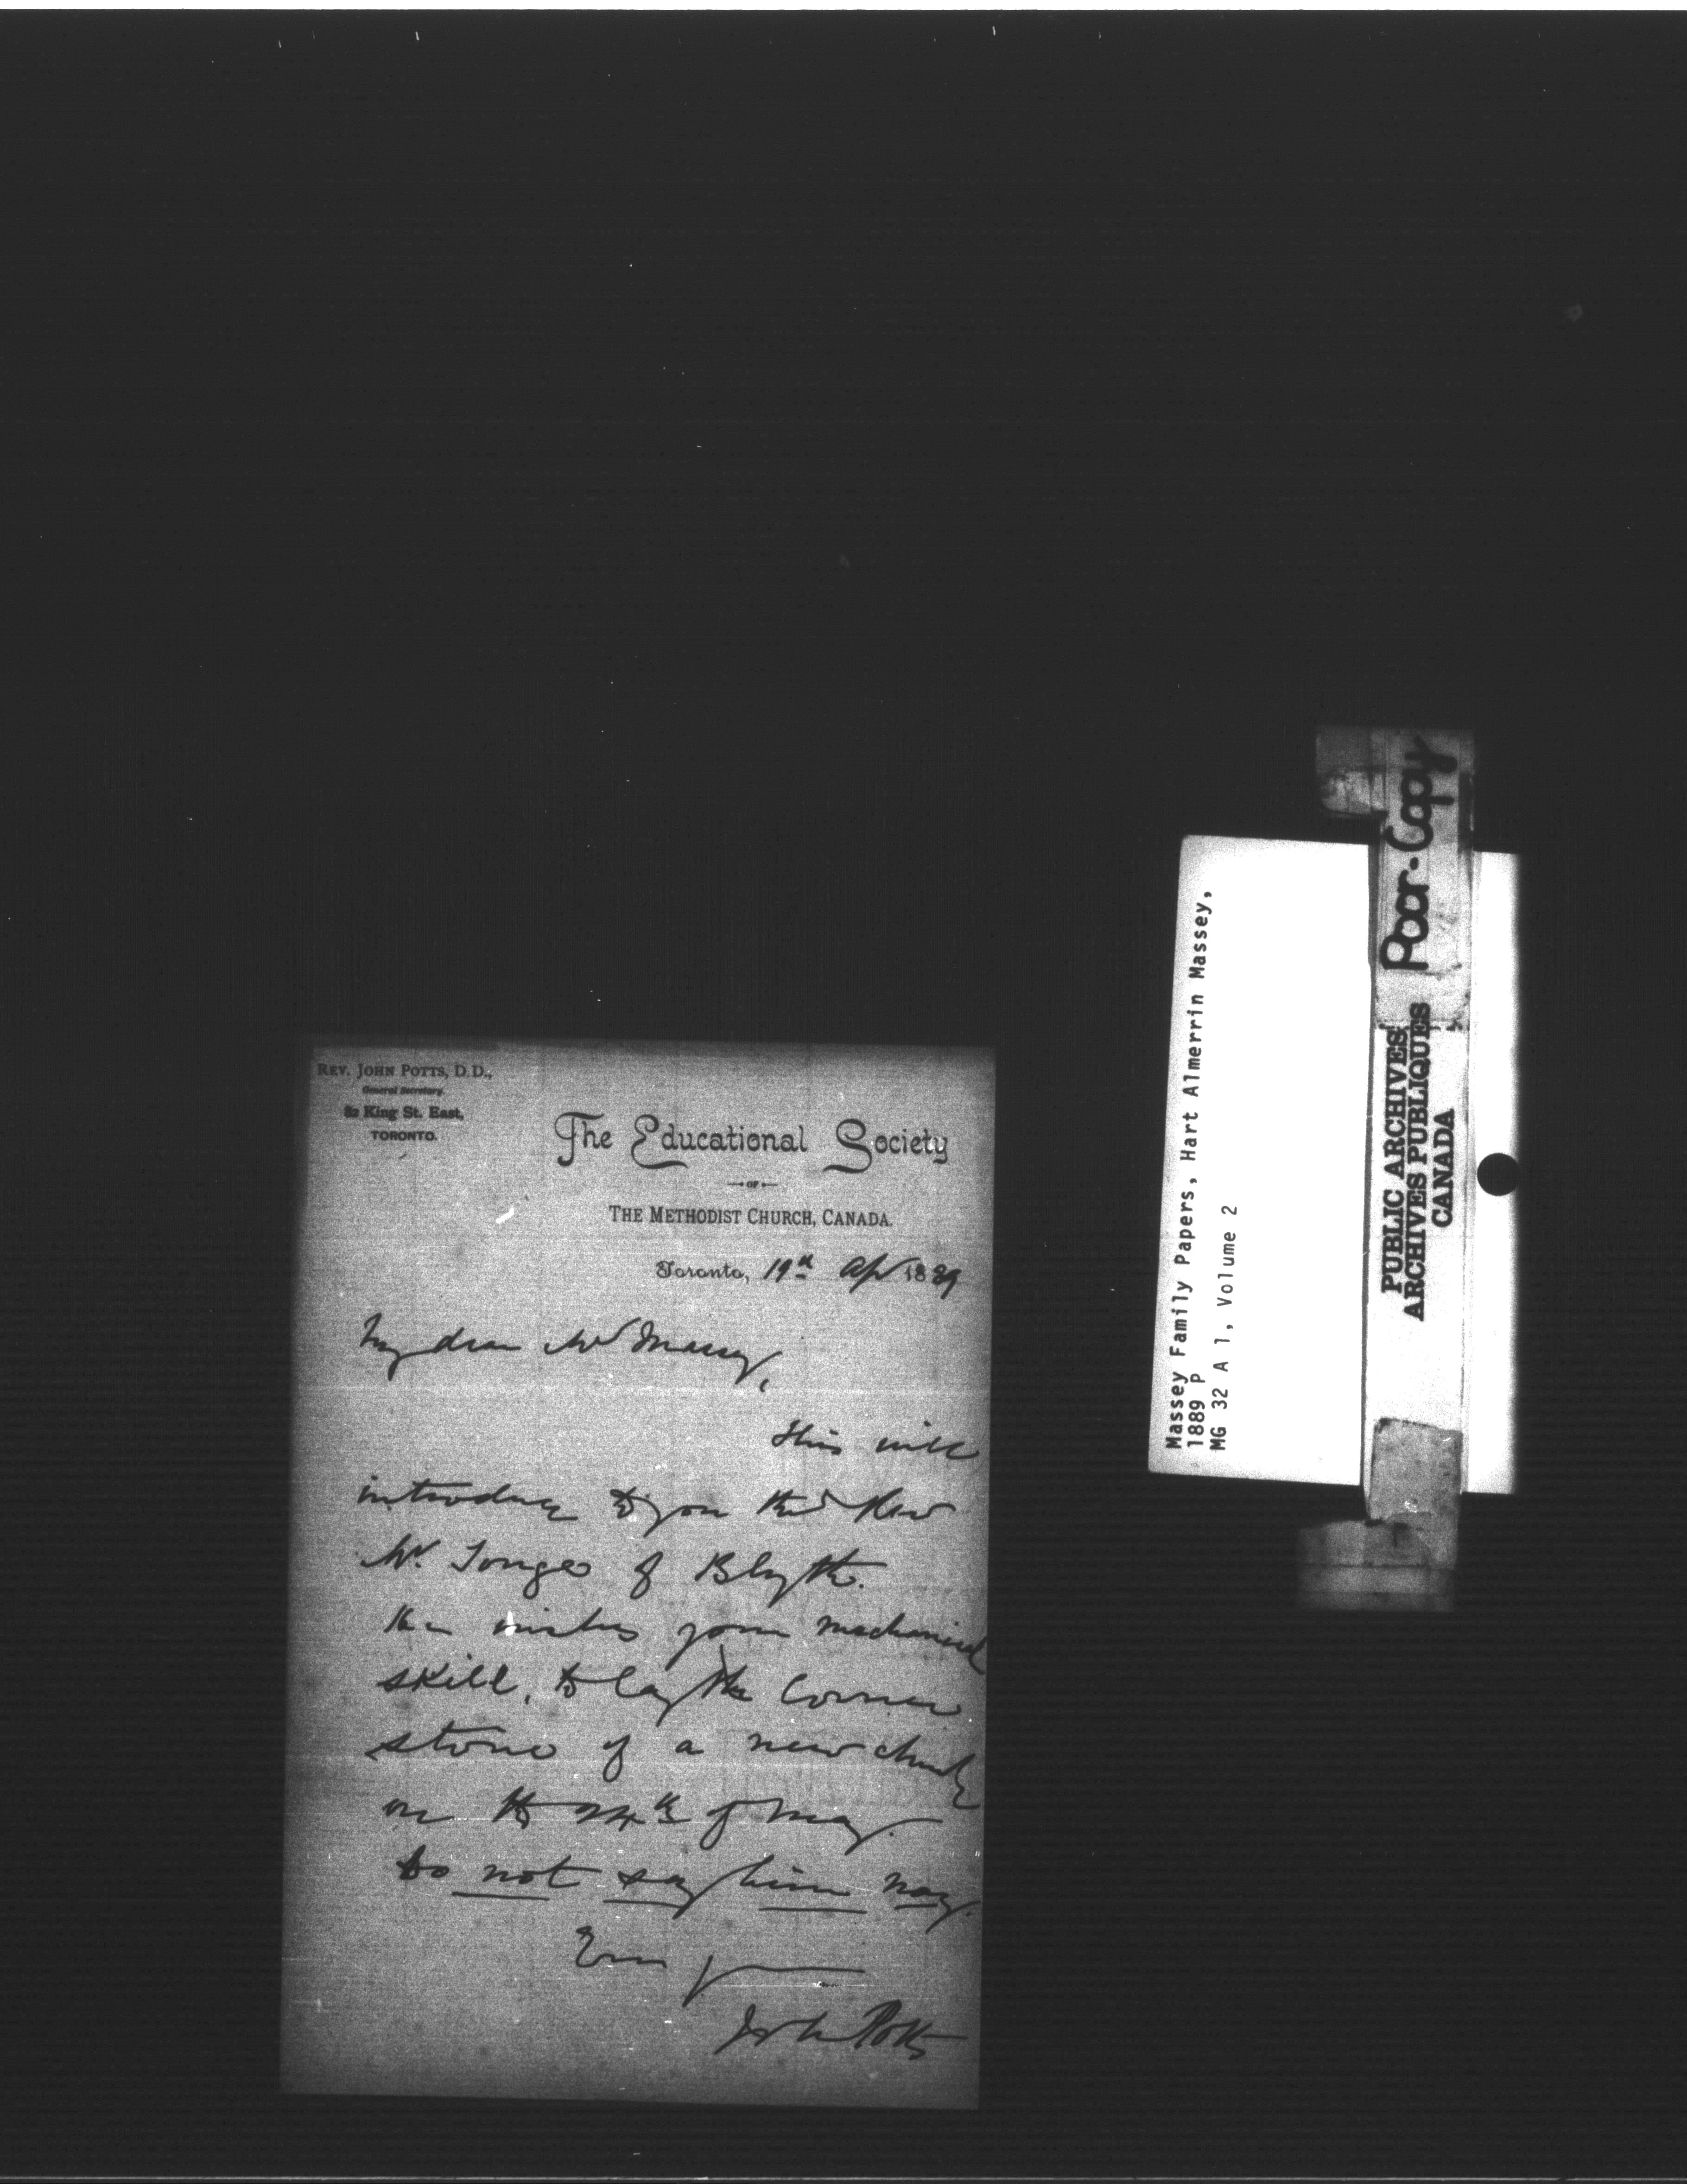 REV. JOHN POTTS, D.D.,
General Secretary.
82 King St. East,
TORONTO.
The Educational Society
OF
THE METHODIST CHURCH, CANADA.
Toronto, 19th Apr 1889
My dear Mr Massey,
This will
introduce to you the Rev
Mr. Tonge of Blyth.
He wishes your mechanical
skill, to lay the Corner
stone of a new church
on the 24th of May.
Do not say him nay.
Ever yours
John Potts
Massey Family Papers, Hart Almerrin Massey,
1889 P
MG 32 A 1, Volume 2
PUBLIC ARCHIVES
ARCHIVES PUBLIQUES
CANADA
Poor-Copy